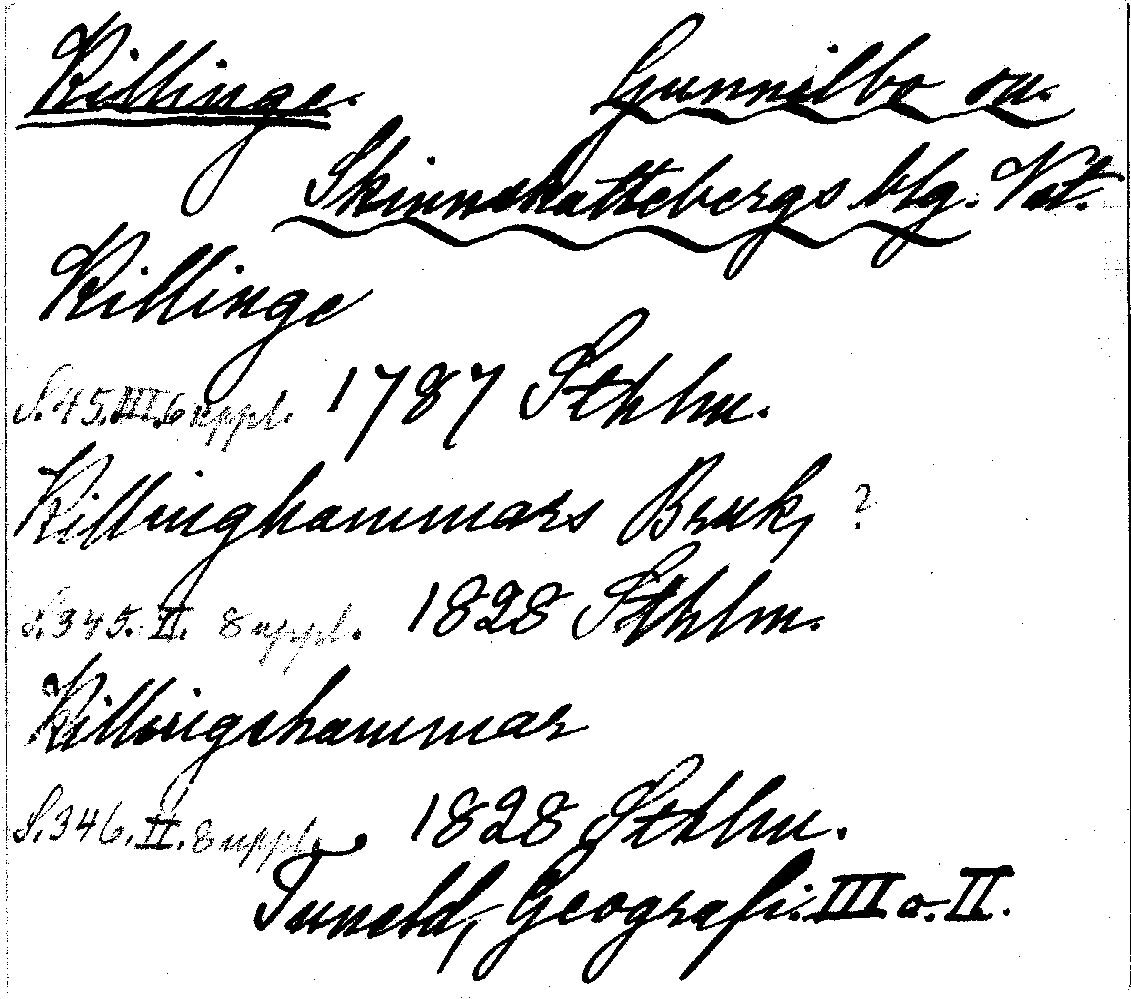 Killinge. Gunnilbo sn.
Skinnskattebergs blg. Vst.
Killinge
S.45.III.Suppl. 1787 Sthlm.
Killinghammars Bruk, ?
S.345.II. Suppl. 1828 Sthlm.
Killingshammar
S.346.II. Suppl. 1828 Sthlm.
Tuneld, Geografi. III o. II.